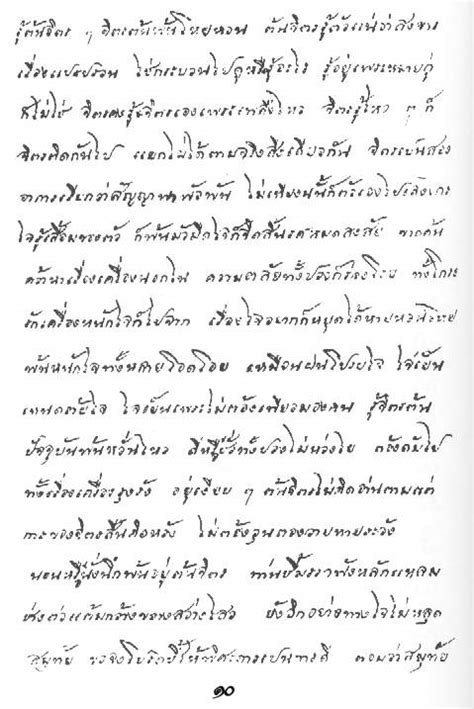 รู้ต้นจิตร ๆ จิตรต้นพ้นโหยหวน ต้นจิตรรู้ตัวแน่ว่าสังขาร
เรื่องแปรปรวน ใช่กระบวนไปดูหรือรู้อะไร รู้อยู่เพราะหมายคู่
ก็ไม่ใช่ จิตรคงรู้จิตรเองเพราะเพลงไหว จิตรรู้ไหว ๆ ก็
จิตรติดกันไป แยกไม่ได้ตามจริงสิ่งเดียวกัน จิตรเป็นสอง
อาการเรียกว่าสัญญาพาพัวพัน ไม่เที่ยงนั้นก็ตัวเองไปเล็งใคร
ใจรู้เสื่อมของตัว ก็พ้นมัวมืดใจก็จืดสิ้นรสหมดสงสัย ขาดค้น
คว้าหาเรื่องเครื่องนอกใน ความอาลัยทั้งปวงก็ร่วงโรย ทั้งโกรธ
รักเครื่องหนักใจก็ไปจาก เรื่องใจอยากก็หยุดได้หายหวนโหย
พ้นหนักใจทั้งหลายโอดโอย เหมือนฝนโปรยใจ ใจเย็น
เห็นด้วยใจ ใจเย็นเพราะไม่ต้องเที่ยวมองคน รู้จิตรต้น
ปัจจุบันพ้นหวั่นไหว ดีหรือชั่วทั้งปวงไม่ห่วงใย ต้องดับไป
ทั้งเรื่องเครื่องรุงรัง อยู่เงียบ ๆ ต้นจิตรไม่คิดอ่านตามแต่
การของจิตรสิ้นคิดหวัง ไม่ต้องวุ่นต้องวายหายระวัง
นอนหรือนั่งนึกพ้นอยู่ต้นจิตร ท่านชี้มรรคฟังหลักแหลม
ช่างต่อแต้มกว้างขวางสว่างไสว ยังอีกอย่างทางใจไม่หลุด
สมุทัย ขอจงโปรดชี้ให้พิสดารเป็นการดี ตอบว่าสมุทัย
๑๐